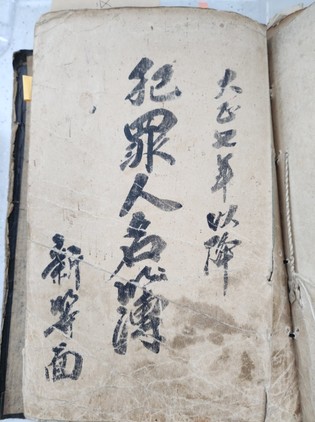 大正七年以降
犯罪人名簿
新等面